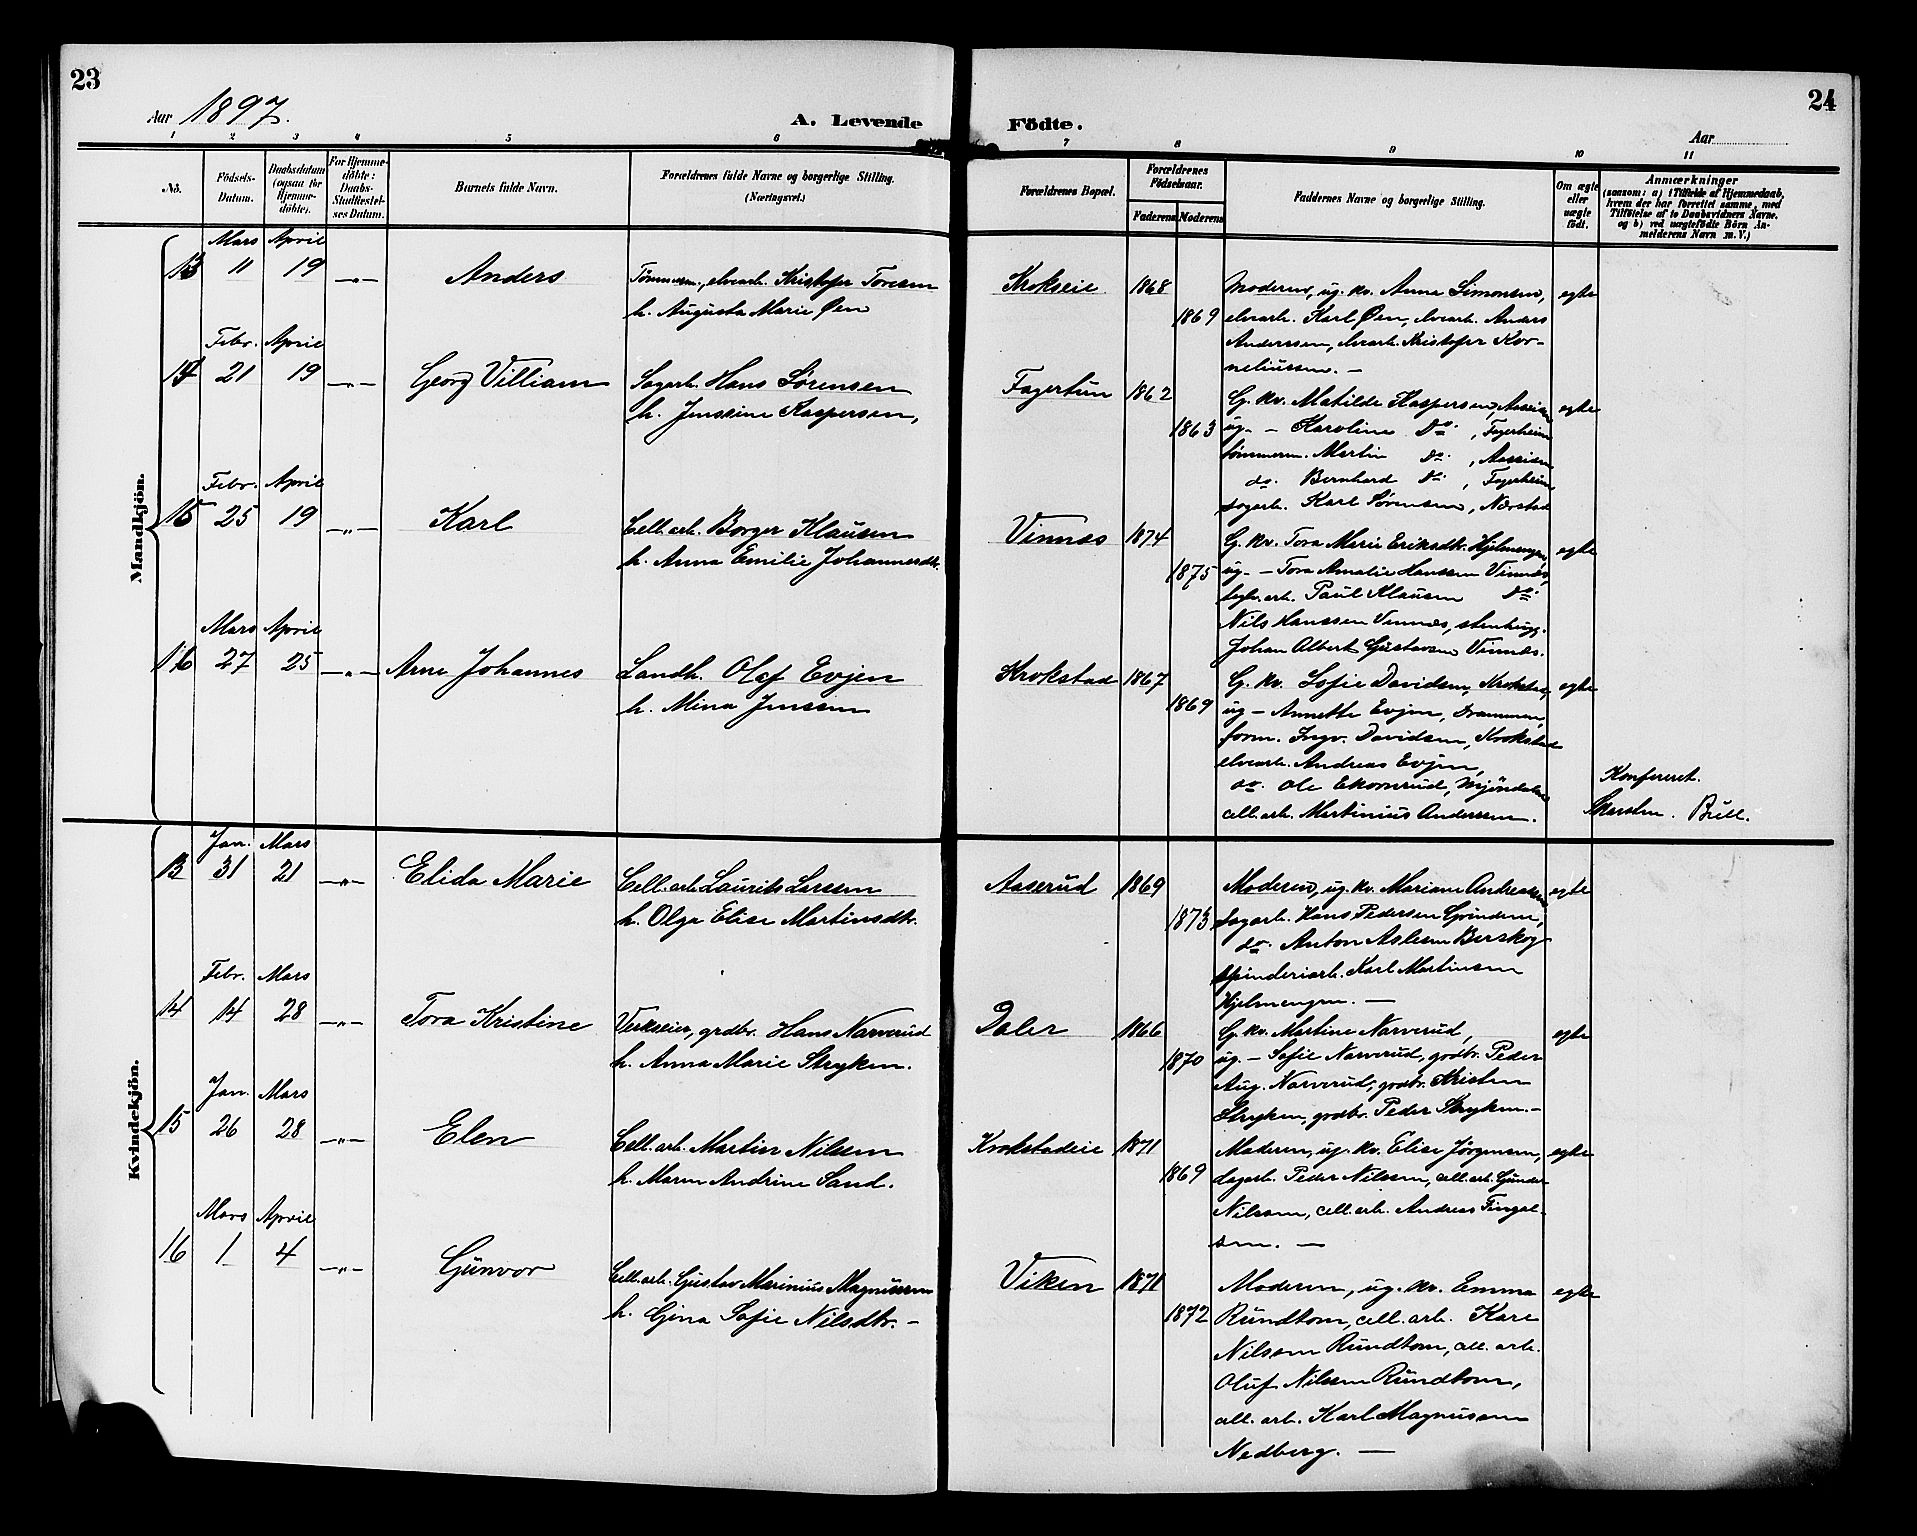 23
24
Aar 1897.
A. Levende Födte.
Aar
1 2 3 4 5 6 7 8 9 10 11
No.
Födsels-Datum.
Daabsdatum (ogsaa for Hjemmedöbte).
For Hjemmedöbte: Daabs-Stadfæstelses Datum.
Barnets fulde Navn.
Forældrenes fulde Navne og borgerlige Stilling. (Næringsvei.)
Forældrenes Bopæl.
Forældrenes Födselsaar.
Faderens Moderens
Faddernes Navne og borgerlige Stilling.
Om ægte eller uægte födt.
Anmærkninger
(saasom: a) i Tilfælde af Hjemmedaab, hvem der har forrettet samme, med Tilföielse af to Daabsvidners Navne, og b) ved uægtefödte Börn Anmelderens Navn m. V.)
Mandkjön.
Mars April
13 11 19 —„— Anders
Tømmerm., elvearb. Kristofer Toresen
h. Augusta Marie Øen
Krokseie 1868
1869
Moderen, ug. kv. Anna Simonsen,
elvearb. Karl Øen, elvearb. Anders
Anderssen, elvearb. Kristofer Kor-
neliussen. —
egte
Febr. April
14 21 19 —„— Georg Villiam
Sagarb. Hans Sørensen
h. Jensine Kaspersen,
Fagertun 1862
1863
G. kv. Matilde Kaspersen, Aasen
ug. — Karoline do. , Fagerheim
tømmerm. Martin do. ,
do. Bernhard do. , Fagerheim
sagarb. Karl Sørensen, Nærstad
egte
Febr. April
15 25 19 —„— Karl
Cell.arb. Borger Klausen
h. Anna Emilie Johannesdtr.
Vinnæs 1874
1875
G. kv. Tora Marie Eriksdtr. Hjelmengen,
ug. — Tora Amalie Hanssen Vinnæs,
Paul Klausen do.
Nils Hanssen Vinnæs, stenhugg.
Johan Albert Gustavsen Vinnæs.
egte
Mars April
16 27 25 —„— Arne Johannes
Landh. Olaf Evjen
h. Mina Jenssen
Krokstad 1867
1869
G. kv. Sofie Davidsen, Krokstad,
ug — Annette Evjen, Drammen,
form. Ingv. Davidsen, Krokstad
elvearb. Andreas Evjen,
do. Ole Ekornrud, Mjøndalen
cell.arb. Martinius Anderssen.
egte
Konfereret.
Bull.
Kvindekjön.
Jan. Mars
13 31 21 —„— Elida Marie
Cell.arb. Laurits Larsen
h. Olga Elise Martinsdtr.
Aaserud 1869
1873
Moderen, ug. kv. Mariane Andreassen
dagarb. Hans Pedersen Grinden,
do. Anton Aslesen Berskog
spinderiarb. Karl Martinsen
Hjelmengen. —
egte
Febr. Mars
14 14 28 —„— Tora Kristine
Verkseier, grdbr. Hans Narverud
h. Anna Marie Stryken.
Daler 1866
1870
G. kv. Martine Narverud,
ug. — Sofie Narverud, grdbr. Peder
Aug. Narverud, grdbr. Kristen
Stryken, grdbr. Peder Stryken. —
egte
Jan. Mars
15 26 28 —„— Elen
Cell.arb. Martin Nilsen
h. Maren Andrine Sand.
Krokstadeie 1871
1869
Moderen, ug. kv. Elise Jørgensen,
dagarb. Peder Nilssen, cell.arb. Gunder
Nilssen, cell.arb. Andreas Fingal-
sen. —
egte
Mars April
16 1 4 —„— Gunvor
Cell.arb. Gustav Marinius Magnussen
h. Gina Sofie Nilsdtr. —
Viken 1871
1872
Moderen, ug. kv. Emma
Rundtom, cell. arb. Kare
Nilssen Rundtom, cell. arb.
Oluf Nilssen Rundtom,
cell. arb. Karl Magnussen
Nedberg. —
egte